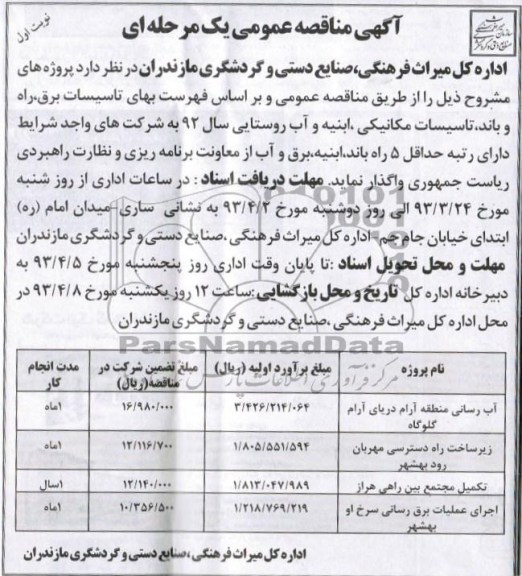 نوبت اول
آگهی مناقصه عمومی یک مرحله ای
اداره کل میراث فرهنگی،صنایع دستی و گردشگری مازندران در نظر دارد پروژه های
مشروح ذیل را از طریق مناقصه عمومی و بر اساس فهرست بهای تاسیسات برق،راه
و باند،تاسیسات مکانیکی ،ابنیه و آب روستایی سال ۹۲ به شرکت های واجد شرایط
دارای رتبه حداقل ۵ راه باند،ابنیه،برق و آب از معاونت برنامه ریزی و نظارت راهبردی
ریاست جمهوری واگذار نماید. مهلت دریافت اسناد : در ساعات اداری از روز شنبه
مورخ ۹۳/۳/۲۴ الی روز دوشنبه مورخ ۹۳/۴/۲ به نشانی ساری-میدان امام (ره)
ابتدای خیابان جام جم- اداره کل میراث فرهنگی،صنایع دستی و گردشگری مازندران
مهلت و محل تحویل اسناد :تا پایان وقت اداری روز پنجشنبه مورخ ۹۳/۴/۵ به
دبیرخانه اداره کل تاریخ و محل بازگشایی :ساعت ۱۲ روز یکشنبه مورخ ۹۳/۴/۸ در
محل اداره کل میراث فرهنگی ،صنایع دستی و گردشگری مازندران
ParsNamadData
نام پروژه مبلغ برآورد اولیه (ریال) مبلغ تضمین شرکت در مناقصه(ریال) مدت انجام کار
آب رسانی منطقه آرام دریای آرام گلوگاه ۳/۴۲۶/۲۱۴/۰۶۴ ۱۶/۹۸۰/۰۰۰ ۱ماه
زیرساخت راه دسترسی مهربان رود بهشهر ۱/۸۰۵/۵۵۱/۵۹۴ ۱۲/۱۱۶/۷۰۰ ۱ماه
تکمیل مجتمع بین راهی هراز ۱/۸۱۳/۰۴۷/۹۸۹ ۱۲/۱۴۰/۰۰۰ ۱سال
اجرای عملیات برق رسانی سرخ او بهشهر ۱/۲۱۸/۷۶۹/۲۱۹ ۱۰/۳۵۶/۵۰۰ ۱ماه
اداره کل میراث فرهنگی ،صنایع دستی و گردشگری مازندران